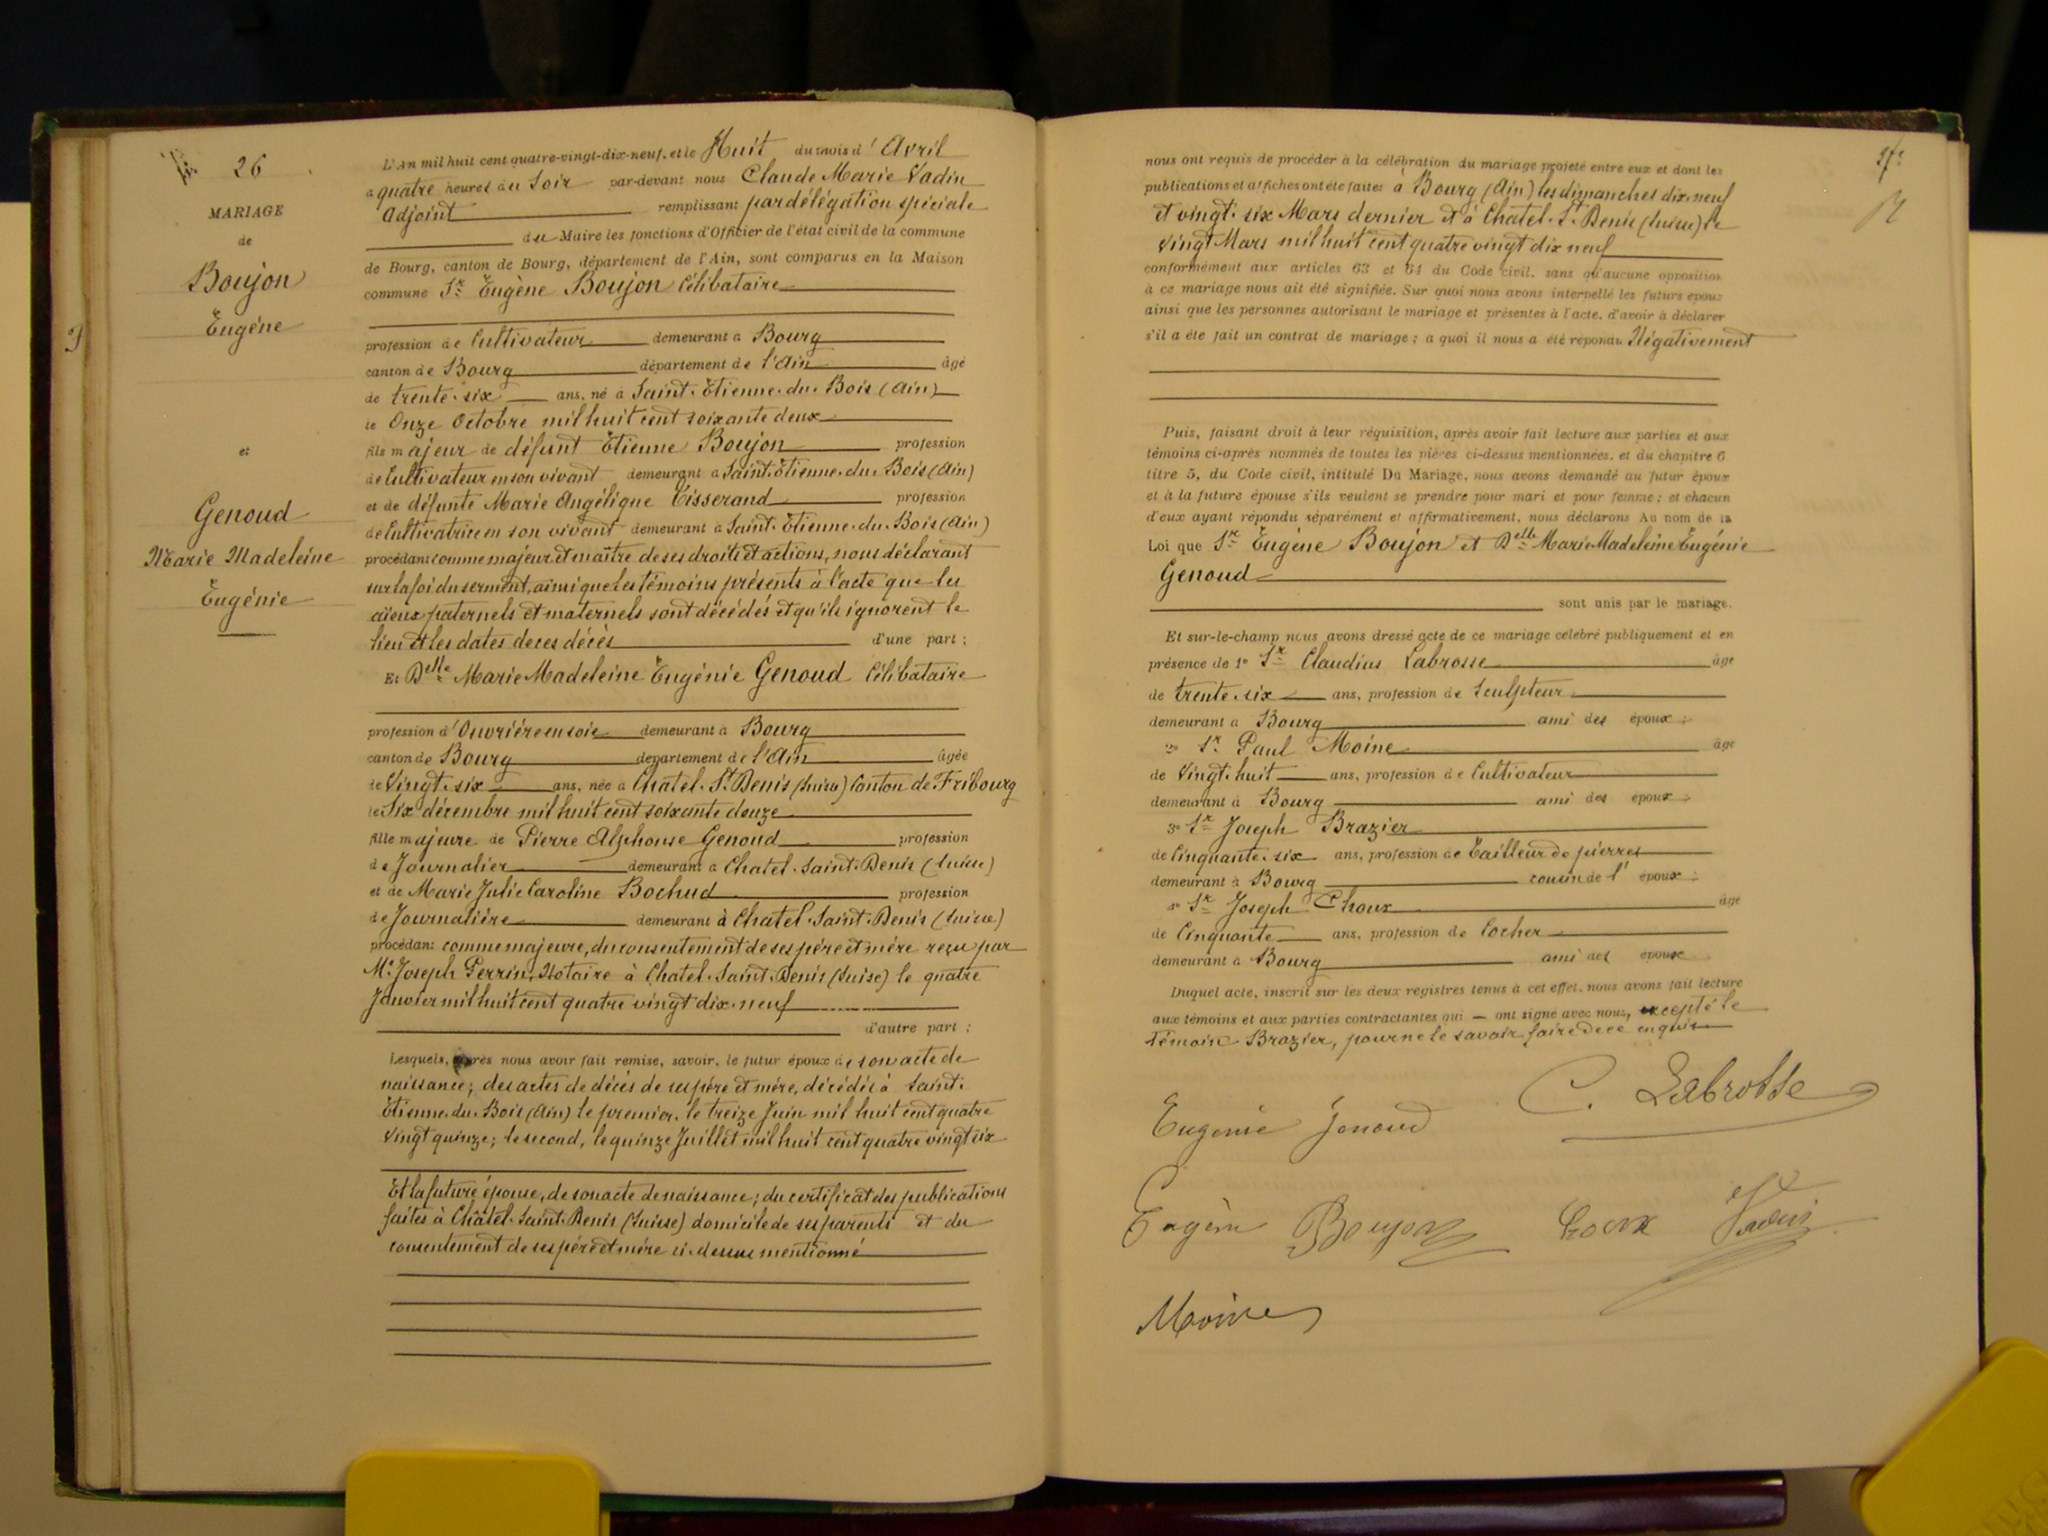 N° 26
MARIAGE
de
Boujon
Eugène
et
Genoud
Marie Madeleine
Eugénie
L'An mil huit cent quatre-vingt-dix-neuf, et le Huit du mois d'Avril
a quatre heures du Soir par-devant nous Claude Marie Vadin
Adjoint remplissant par délégation spéciale
du Maire les fonctions d'Officier de l'état civil de la commune
de Bourg, canton de Bourg, département de l'Ain, sont comparus en la Maison
commune Sr Eugène Boujon Célibataire
profession de Cultivateur demeurant à Bourg
canton de Bourg département de l'Ain âgé
de trente-six ans, né à Saint-Etienne-du-Bois (Ain)
le Onze Octobre mil huit cent soixante deux
fils majeur de défunt Etienne Boujon profession
de Cultivateur en son vivant demeurant à Saint-Etienne-du-Bois (Ain)
et de défunte Marie Angélique Tisserand profession
de Cultivatrice en son vivant demeurant à Saint-Etienne-du-Bois (Ain)
procédant comme majeur et maître de ses droits et actions, nous déclarant
sur la foi du serment, ainsi que les témoins présents à l'acte que les
aïeux paternels et maternels sont décédés et qu'ils ignorent le
lieu et les dates de ces décès d'une part ;
Et Delle Marie Madeleine Eugénie Genoud Célibataire
profession d'Ouvrière en soie demeurant à Bourg
canton de Bourg département de l'Ain âgée
de Vingt-six ans, née à Chatel-St Denis (Suisse) Canton de Fribourg
le Six décembre mil huit cent soixante douze
fille majeure de Pierre Alphonse Genoud profession
de Journalier demeurant à Chatel-Saint-Denis (Suisse)
et de Marie Julie Caroline Bochud profession
de Journalière demeurant à Chatel-Saint-Denis (Suisse)
procédant comme majeure, du consentement de ses père et mère reçu par
Me Joseph Perrin, Notaire à Chatel-Saint-Denis (Suisse) le quatre
Janvier mil huit cent quatre vingt dix-neuf
d'autre part ;
Lesquels, après nous avoir fait remise, savoir, le futur époux de son acte de
naissance ; des actes de décès de ses père et mère, décédés à Saint-
Etienne-du-Bois (Ain) le premier, le treize Juin mil huit cent quatre
vingt quinze ; le second, le quinze Juillet mil huit cent quatre vingt six
Et la future épouse, de son acte de naissance ; du certificat des publications
faites à Châtel-Saint-Denis (Suisse) domicile de ses parents et du
consentement de ses père et mère ci-dessus mentionné
nous ont requis de procéder à la célébration du mariage projeté entre eux et dont les
publications et affiches ont été faites à Bourg (Ain) les dimanches dix-neuf
et vingt-six Mars dernier et à Chatel-St Denis (Suisse) le
vingt Mars mil huit cent quatre vingt dix neuf
conformément aux articles 63 et 64 du Code civil, sans qu'aucune opposition
à ce mariage nous ait été signifiée. Sur quoi nous avons interpellé les futurs époux
ainsi que les personnes autorisant le mariage et présentes à l'acte, d'avoir à déclarer
s'il a été fait un contrat de mariage ; à quoi il nous a été répondu Négativement
Puis, faisant droit à leur réquisition, après avoir fait lecture aux parties et aux
témoins ci-après nommés de toutes les pièces ci-dessus mentionnées, et du chapitre 6
titre 5, du Code civil, intitulé Du Mariage, nous avons demandé au futur époux
et à la future épouse s'ils veulent se prendre pour mari et pour femme ; et chacun
d'eux ayant répondu séparément et affirmativement, nous déclarons Au nom de la
Loi que Sr Eugène Boujon et Delle Marie Madeleine Eugénie
Genoud
sont unis par le mariage.
Et sur-le-champ nous avons dressé acte de ce mariage célébré publiquement et en
présence de 1° Sr Claudius Labrosse âgé
de trente-six ans, profession de Sculpteur
demeurant à Bourg ami des époux ;
2° Sr Paul Moine âgé
de Vingt-huit ans, profession de Cultivateur
demeurant à Bourg ami des époux ;
3° Sr Joseph Brazier
de Cinquante-six ans, profession de Tailleur de pierres
demeurant à Bourg cousin de l'époux ;
4° Sr Joseph Choux âgé
de Cinquante ans, profession de Cocher
demeurant à Bourg ami des époux
Duquel acte, inscrit sur les deux registres tenus à cet effet, nous avons fait lecture
aux témoins et aux parties contractantes qui ont signé avec nous, excepté le
témoin Brazier, pour ne le savoir faire de ce enquis
C. Labrosse
Eugénie Genoud
Eugène Boujon Choux Vadin
Moine